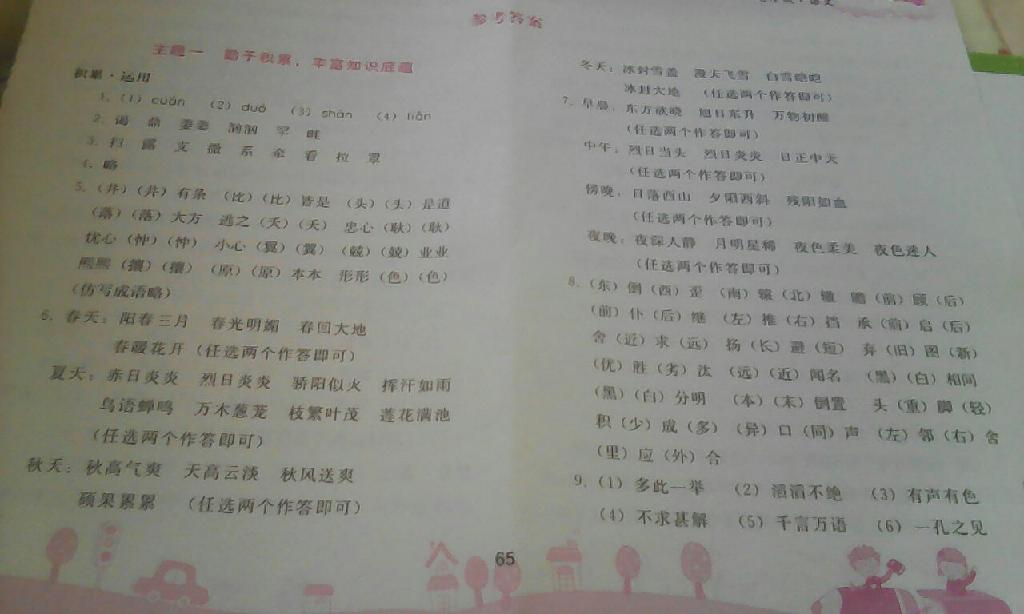 参考答案
主题一 勤于积累，丰富知识底蕴
积累·运用
1.（1）cuán （2）duó （3）shàn （4）liǎn
4. 略
5.（井）（井）有条 （比）（比）皆是 （头）（头）是道
（落）（落）大方 逃之（夭）（夭） 忠心（耿）（耿）
忧心（忡）（忡） 小心（翼）（翼） （兢）（兢）业业
熙熙（攘）（攘） （原）（原）本本 形形（色）（色）
（仿写成语略）
6. 春天：阳春三月 春光明媚 春回大地
春暖花开（任选两个作答即可）
夏天：赤日炎炎 烈日炎炎 骄阳似火 挥汗如雨
鸟语蝉鸣 万木葱茏 枝繁叶茂 莲花满池
（任选两个作答即可）
秋天：秋高气爽 天高云淡 秋风送爽
硕果累累 （任选两个作答即可）
65
冬天：冰封雪盖 漫天飞雪 白雪皑皑
冰封大地 （任选两个作答即可）
7. 早晨：东方欲晓 旭日东升 万物初醒
（任选两个作答即可）
中午：烈日当头 烈日炎炎 日正中天
（任选两个作答即可）
傍晚：日落西山 夕阳西斜 残阳如血
（任选两个作答即可）
夜晚：夜深人静 月明星稀 夜色柔美 夜色迷人
（任选两个作答即可）
8.（东）倒（西）歪 （南）辕（北）辙 瞻（前）顾（后）
（前）仆（后）继 （左）推（右）挡 承（前）启（后）
舍（近）求（远） 扬（长）避（短） 弃（旧）图（新）
（优）胜（劣）汰 （远）（近）闻名 （黑）（白）相间
（黑）（白）分明 （本）（末）倒置 头（重）脚（轻）
积（少）成（多） （异）口（同）声 （左）邻（右）舍
（里）应（外）合
9.（1）多此一举 （2）滔滔不绝 （3）有声有色
（4）不求甚解 （5）千言万语 （6）一孔之见